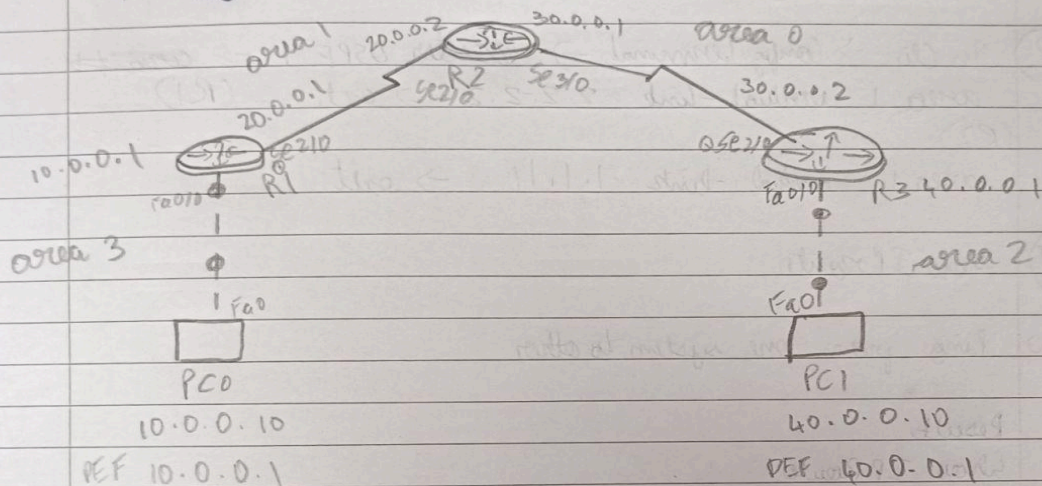 area 1 20.0.0.2 30.0.0.1 area 0
R2
Se2/0 Se3/0
20.0.0.1 30.0.0.2
10.0.0.1 Se2/0 Se2/0
Fa0/0 R1 Fa0/0 R3 40.0.0.1
area 3 area 2
Fa0 Fa0
PC0 PC1
10.0.0.10 40.0.0.10
DEF 10.0.0.1 DEF 40.0.0.1